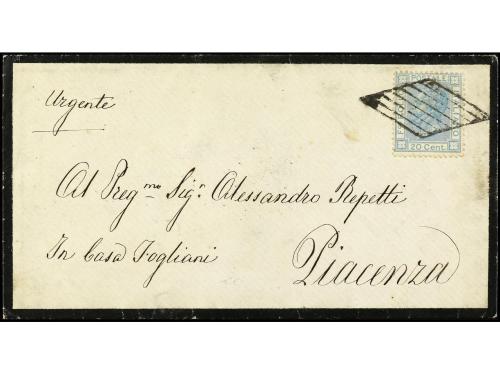 POSTALE
20 Cent.
Urgente
Al Preg.mo Sig.r Alessandro Repetti
In Casa Fogliani
Piacenza